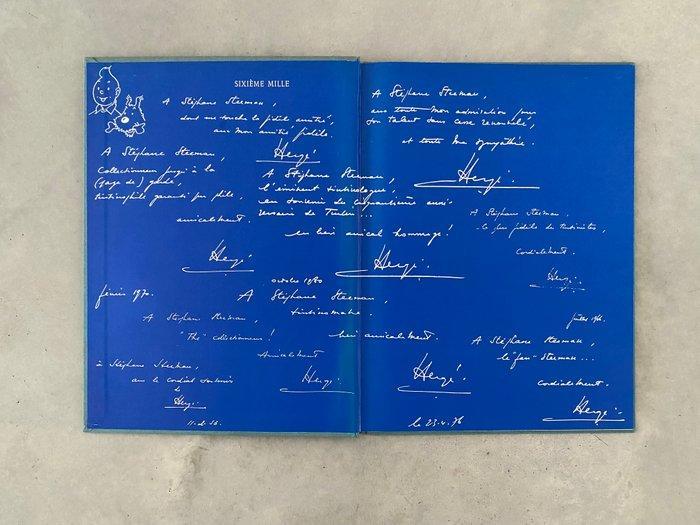 SIXIÈME MILLE
A Stéphane Steeman,
dont me touche la fidèle amitié,
avec mon amitié fidèle.
Hergé
A Stéphane Steeman,
Collectionneur jusqu'à la
(page de) garde,
tintinophile garanti pur
amicalement.
Hergé
A Stéphane Steeman,
l'éminent tintinologue,
en souvenir du
en bien amical hommage!
Hergé.
octobre 1980
février 1970.
A Stéphane Steeman,
"The" collectionneur!
Amicalement
Hergé.
à Stéphane Steeman,
en cordial souvenir
de
Hergé
A Stéphane Steeman,
tintinomane.
bien amicalement.
Hergé!
le 23.4.76
A Stéphane Steeman,
avec toute mon admiration pour
son talent sans cesse renouvelé,
et toute ma sympathie.
Hergé.
A Stéphane Steeman,
le plus fidèle des tintinistes,
Cordialement.
Hergé.
A Stéphane Steeman,
le "fan" Steeman...
cordialement.
Hergé.